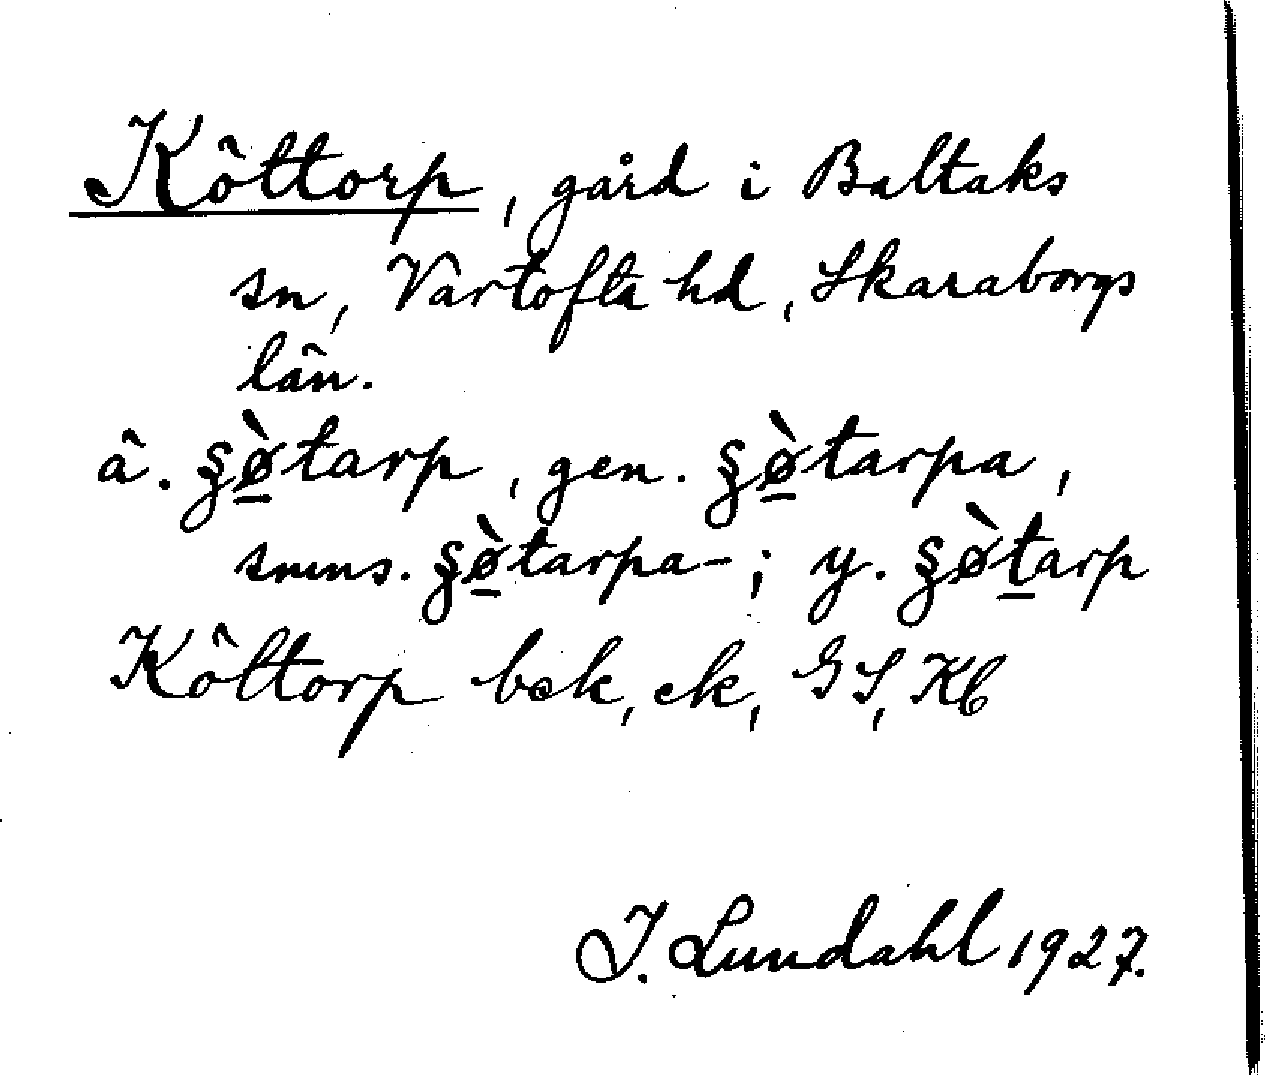 Köttorp, gård i Baltaks
sn, Vartofta hd, Skaraborgs
län.
ä. §ø̱̀tarp, gen. §ø̱̀tarpa,
smns. §ø̱̀tarpa-; y. §ø̀ṯarp
Köttorp bok, ek, GS, Kb
I. Lundahl 1927.